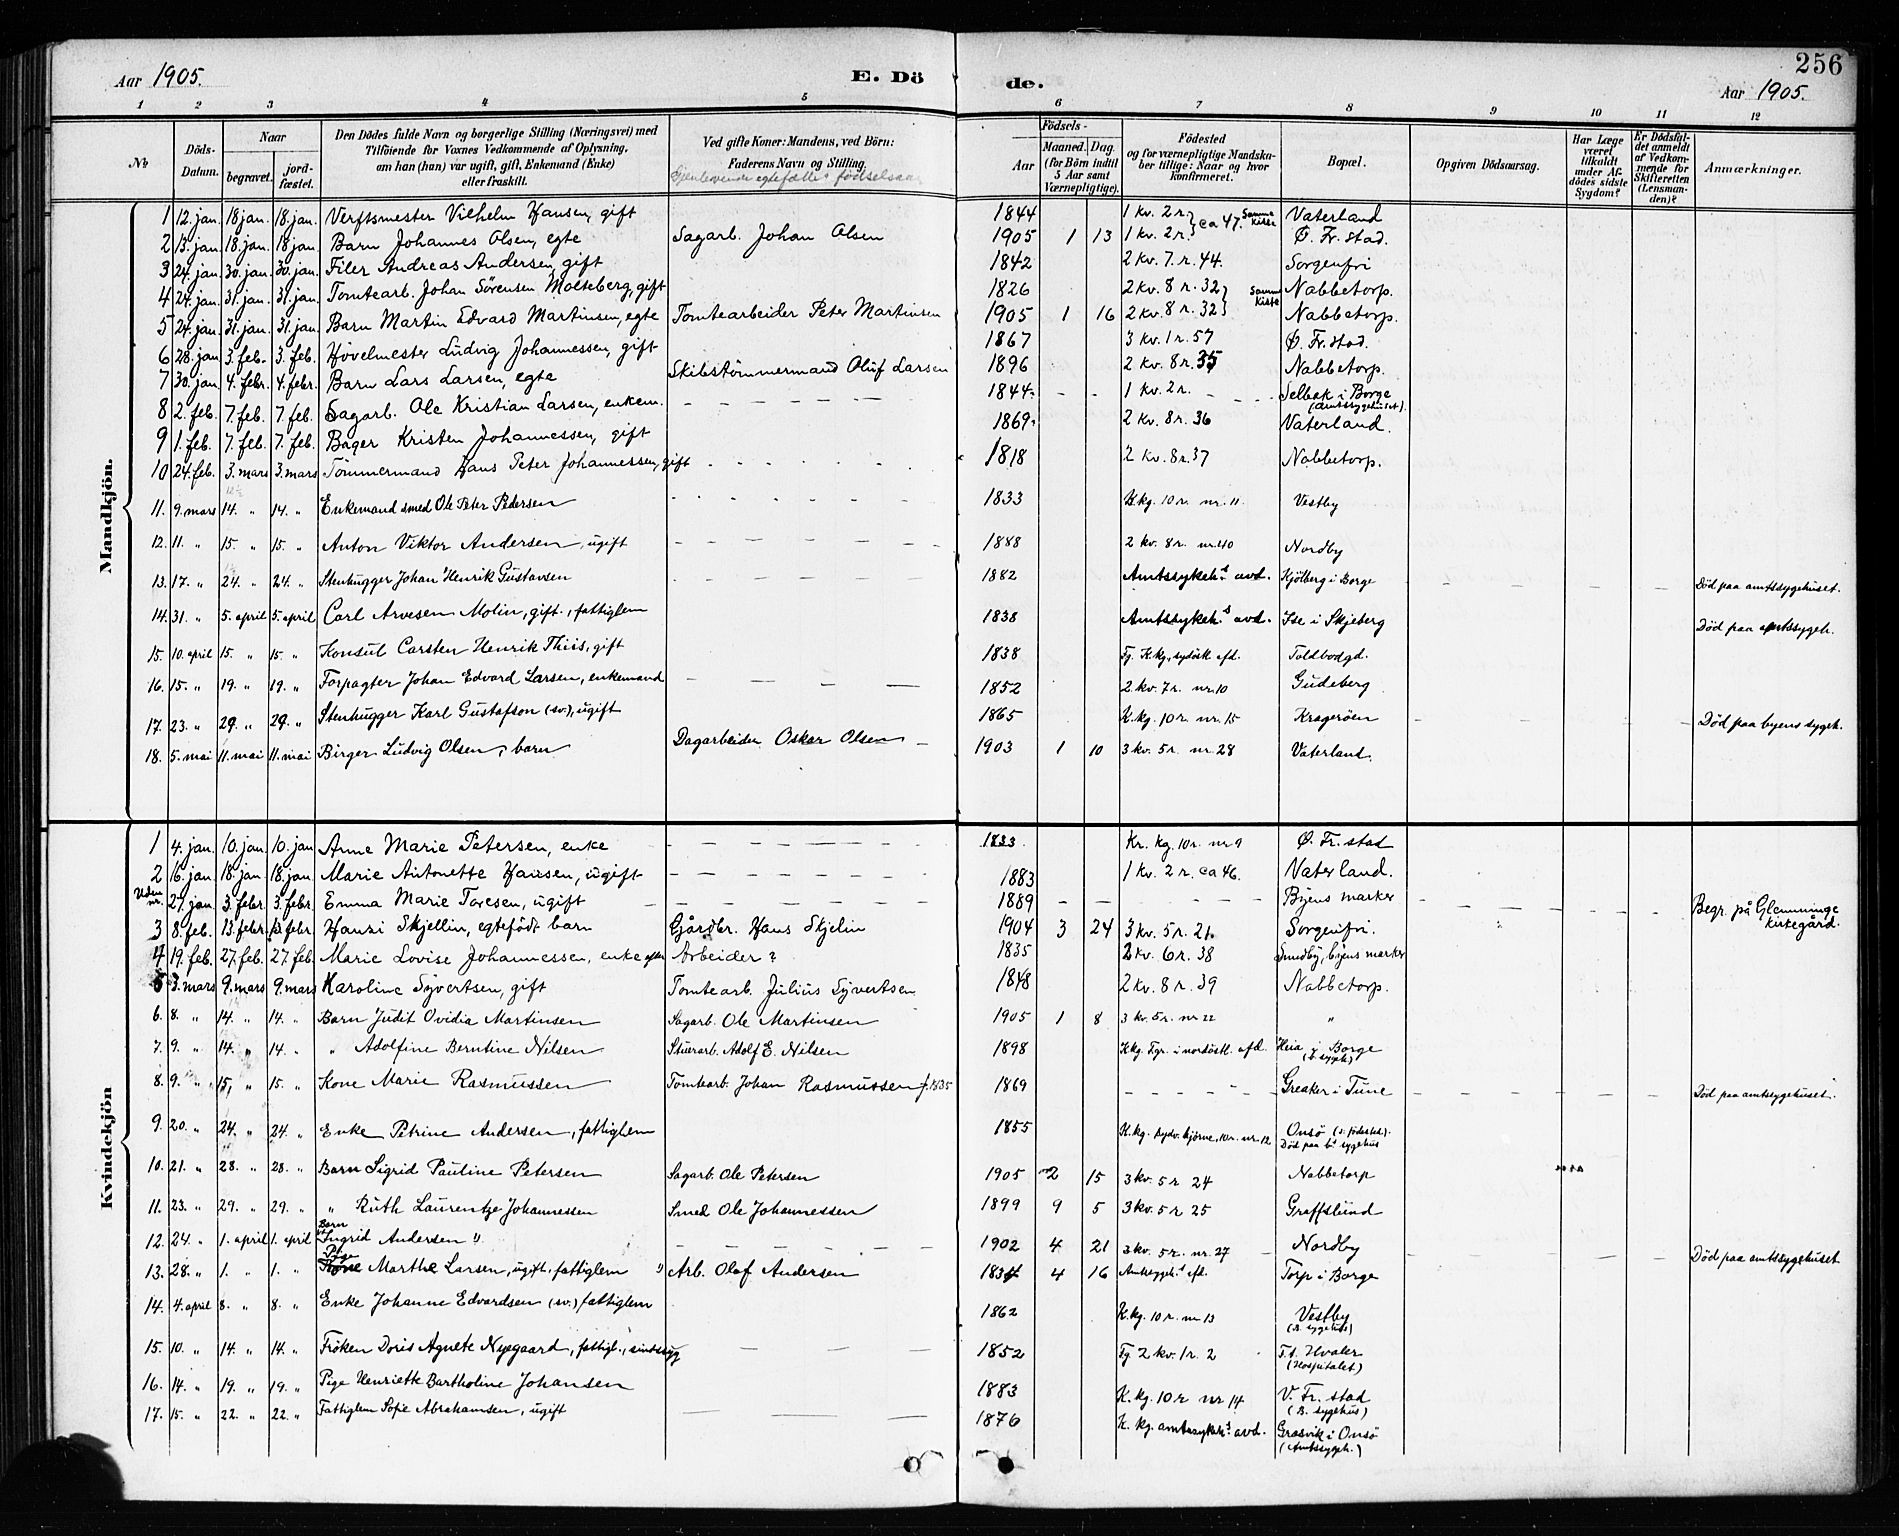 256
Aar 1905.
E. Dö
de.
Aar 1905.
1 2 3 4 5 6 7 8 9 10 11 12
No
Döds-
Datum.
Naar
begravet.
jord-
fæstet.
Den Dödes fulde Navn og borgerlige Stilling (Næringsvei) med
Tilföiende for Voxnes Vedkommende af Oplysning,
om han (hun) var ugift, gift, Enkemand (Enke)
eller fraskilt.
Ved gifte Koner: Mandens, ved Börn:
Faderens Navn og Stilling.
Gjenlevende egtefælles födselsaar
Födsels-
Aar
Maaned.
Dag.
(for Börn indtil
5 Aar samt
Værnepligtige).
Födested
og for værnepligtige Mandska-
ber tillige: Naar og hvor
konfirmeret.
Bopæl.
Opgiven Dödsaarsag.
Har Læge
været
tilkaldt
under Af-
dödes sidste
Sygdom?
Er Dödsfal-
det anmeldt
af Vedkom-
mende for
Skifteretten
(Lensman-
den)?
Anmærkninger.
Mandkjön.
1 12. jan. 18 jan. 18. jan. Verftsmester Vilhelm Hansen, gift 1844 1 kv. 2 r. ca 47. Samme Kiste Vaterland
2 13. jan. 18. jan. 18 jan. Barn Johannes Olsen, egte Sagarb. Johan Olsen 1905 1 13 1 kv. 2 r. Ö. Fr. stad.
3 24. jan. 30. jan. 30. jan. Filer Andreas Andersen, gift 1842 2 kv. 7. r. 44. Sorgenfri
4 24. jan. 31. jan. 31. jan. Tomtearb. Johan Sörensen Molteberg, gift 1826 2 kv. 8 r. 32 Samme Kiste Nabbetorp.
5 24. jan. 31. jan. 31. jan. Barn Martin Edvard Martinsen, egte Tomtearbeider Peter Martinsen 1905 1 16 2 kv. 8 r. 32 Nabbetorp.
6 28. jan. 3. feb. 3. feb. Hövelmester Ludvig Johannessen, gift 1867 3 kv. 1 r. 57 Ö. Fr. stad.
7 30. jan. 4. febr. 4. febr. Barn Lars Larsen, egte Skibstömmermand Oluf Larsen 1896 2 kv. 8 r. 35 Nabbetorp.
8 2. feb. 7. feb. 7. feb. Sagarb. Ole Kristian Larsen, enkem. 1844. 1 kv. 2 r. Selbak i Borge
(Amtssygehuset).
9 1. feb. 7. feb. 7. feb. Bager Kristen Johannessen, gift 1869. 2 kv. 8 r. 36 Vaterland.
10 24. feb. 3. mars 3. mars Tömmermand Hans Peter Johannessen, gift 1818 2 kv. 8 r. 37 Nabbetorp.
11. 9. mars 14. " 14. " Enkemand smed Ole Peter Pedersen 1833 K. kg. 10 r. nr. 11. Vestby
12. 11. " 15. " 15. " Anton Viktor Andersen, ugift 1888 2 kv. 8 r. nr. 40 Nordby
13. 17. " 24. " 24. " Stenhugger Johan Henrik Gustavsen 1882 Amtssykeh.s avd. Kjölberg i Borge Död paa amtssygehuset.
14. 31. " 5. april 5. april Carl Arvesen Molin, gift, fattiglem 1838 Amtssykeh.s avd. Ise i Skjeberg Död paa amtssygeh.
15. 10. april 15. " 15. " Konsul Carsten Henrik Thiis, gift 1838 Fg. K. kg. sydöstl. afd. Toldbodgd.
16. 15. " 19. " 19. " Forpagter Johan Edvard Larsen, enkemand 1852 2 kv. 7 r. nr. 10 Gudeberg
17. 23. " 29. " 29. " Stenhugger Karl Gustafson (sv.), ugift 1865 K. kg. 10 r. nr. 15 Krageröen Död paa byens sygeh.
18. 5. mai 11. mai 11. mai Birger Ludvig Olsen, barn Dagarbeider Oskar Olsen 1903 1 10 3 kv. 5 r. nr. 28 Vaterland.
Kvindekjön
1 4. jan. 10. jan. 10. jan Anne Marie Petersen, enke 1833. Kr. kg. 10 r. nr 9 Ö. Fr. stad
2 16. jan 18. jan 18. jan. Marie Antonette Hansen, ugift 1883 1 kv. 2 r. ca 46. Vaterland.
Uden nr. 27. jan. 3. febr. 3. febr. Emma Marie Toresen, ugift 1889 Byens marker Begr. på Glemminge
kirkegård.
3 8. feb. 13. febr. 13 febr. Hanzi Skjellin, egtefödt barn Gårdbr. Hans Skjelin 1904 3 24 3 kv. 5 r. 21. Sorgenfri.
4 19. feb. 27. feb. 27. feb. Marie Lovise Johannessen, enke efter Arbeider ? 1835 2 kv. 6 r. 38 Smedby, byens marker
5 3. mars 9. mars 9. mars Karoline Syvertsen, gift Tomtearb. Julius Syvertsen 1848 2 kv. 8 r. 39 Nabbetorp.
6. 8. " 14. " 14. " Barn Judit Ovidia Martinsen Sagarb. Ole Martinsen 1905 1 8 3 kv. 5 r. nr 22 "
7. 9. " 14. " 14. " " Adolfine Berntine Nilsen Stuerarb. Adolf E. Nilsen 1898 K kg. Fgr. i nordöstl. afd. Heia i Borge
8. 9. " 15. " 15. " Kone Marie Rasmussen Tomtearb. Johan Rasmussen f. 1835 1869 Greaker i Tune Död paa amtssygehuset.
9. 20. " 24. " 24. " Enke Petrine Andersen, fattiglem 1855 K. kg. sydv. hjörne, 10 r. nr. 12 Onsö (s. födested).
Död paa b.s sygehus
10. 21. " 28. " 28. " Barn Sigrid Pauline Petersen Sagarb. Ole Petersen 1905 2 15 3 kv. 5 r 24 Nabbetorp
11. 23. " 29. " 29. " " Ruth Laurentze Johannessen Smed Ole Johannessen 1899 9 5 3 kv. 5 r 25 Graffslund
12. 24. " 1. april 1. april Barn Ingrid Andersen 1902 4 21 3 kv. 5 r. nr. 27 Nordby
13. 28. " 1. " 1. " Pige Kone Marthe Larsen, ugift, fattiglem Arb. Olaf Andersen 1834 4 16 Amtssygeh.s afd. Torp i Borge Död paa amtssygehuset
14. 4. april 8. " 8. " Enke Johanne Edvardsen (sv.) fattiglem 1862 K. kg. 10 r. nr 13 Vestby
(B. sygehus)
15. 10. " 14. " 14. " Fröken Doris Agnete Nygaard, fattigl., sindssyg 1852 Fg 2 kv. 1 r. 2 F.d. Hvaler
(Hospitalet)
16. 14. " 19. " 19. " Pige Henriette Bartholine Johansen 1883 K. kg. 10 r nr 14 V. Fr. stad
(B. sygehus)
17. 15. " 22. " 22. " Fattiglem Sofie Abrahamsen, ugift 1876 K. kg. amtssykeh.s avd. Græsvik i Onsö
(Amtssygeh.)